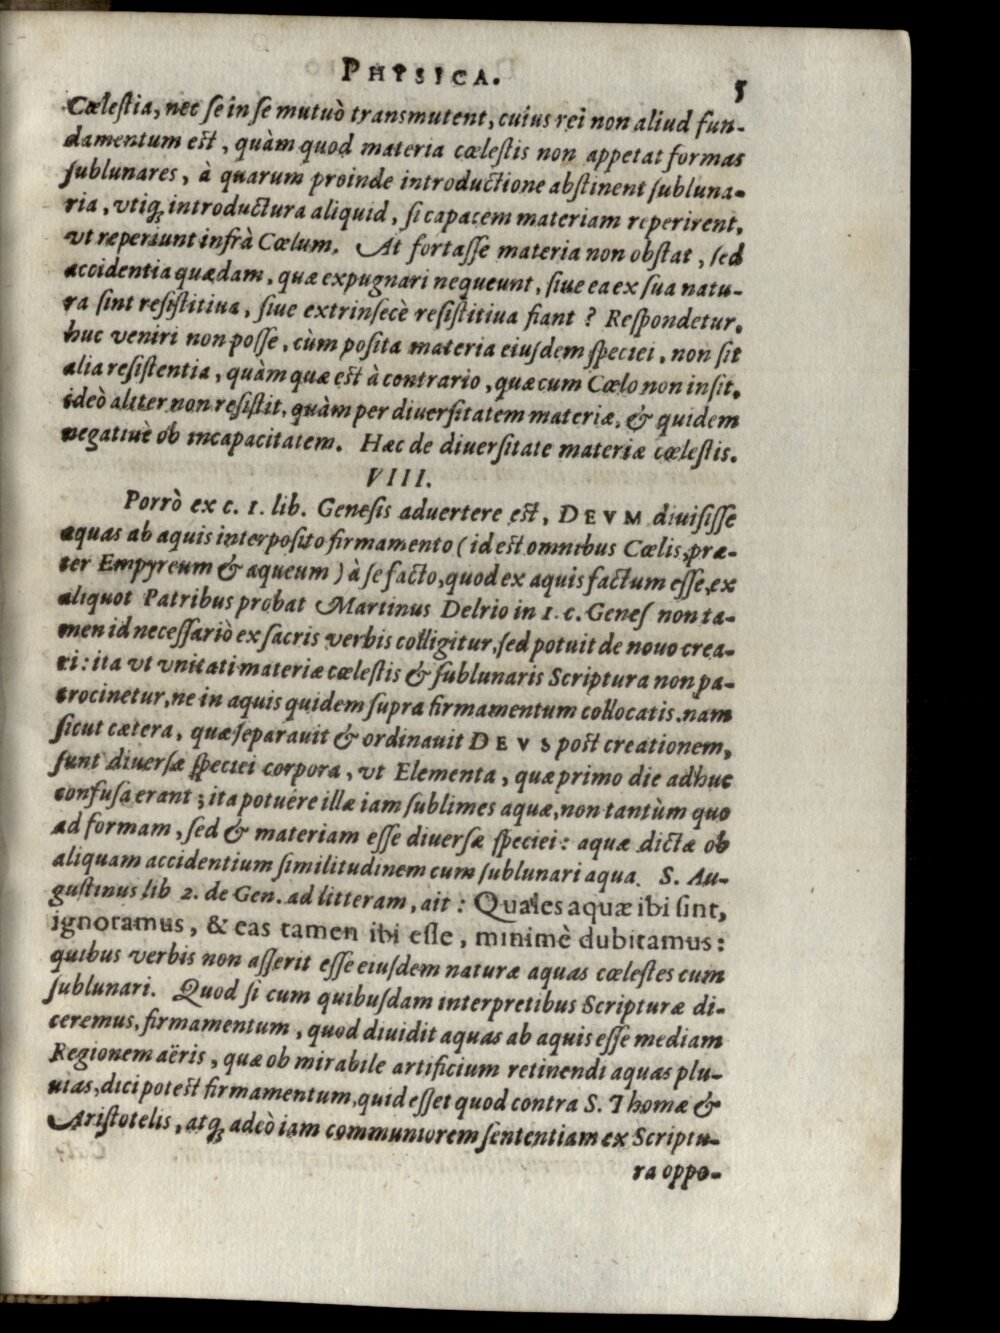 PHYSICA. 5
Cœlestia, nec se in se mutuò transmutent, cuius rei non aliud fun-
damentum est, quàm quod materia cœlestis non appetat formas
sublunares, à quarum proinde introductione abstinent subluna-
ria, vtiq; introductura aliquid, si capacem materiam reperirent,
vt reperiunt infrà Cœlum. At fortasse materia non obstat, sed
accidentia quædam, quæ expugnari nequeunt, siue ea ex sua natu-
ra sint resistitiua, siue extrinsecè resistitiua fiant? Respondetur,
huc veniri non posse, cùm posita materia eiusdem speciei, non sit
alia resistentia, quàm quæ est à contrario, quæ cum Cœlo non insit,
ideò aliter non resistit, quàm per diuersitatem materiæ, & quidem
negatiuè ob incapacitatem. Hæc de diuersitate materiæ cœlestis.
VIII.
Porrò ex c. 1. lib. Genesis aduertere est, DEVM diuisisse
aquas ab aquis interposito firmamento (id est omnibus Cœlis, præ-
ter Empyreum & aqueum) à se facto, quod ex aquis factum esse, ex
aliquot Patribus probat Martinus Delrio in 1. c. Genes non ta-
men id necessariò ex sacris verbis colligitur, sed potuit de nouo crea-
ri: ita vt vnitati materiæ cœlestis & sublunaris Scriptura non pa-
trocinetur, ne in aquis quidem supra firmamentum collocatis. nam
sicut cætera, quæ separauit & ordinauit DEVS post creationem,
sunt diuersæ speciei corpora, vt Elementa, quæ primo die adhuc
confusa erant; ita potuêre illæ iam sublimes aquæ, non tantùm quo
ad formam, sed & materiam esse diuersæ speciei: aquæ dictæ ob
aliquam accidentium similitudinem cum sublunari aqua. S. Au-
gustinus lib 2. de Gen. ad litteram, ait: Quales aquæ ibi sint,
ignoramus, & eas tamen ibi esse, minimè dubitamus:
quibus verbis non asserit esse eiusdem naturæ aquas cœlestes cum
sublunari. Quod si cum quibusdam interpretibus Scripturæ di-
ceremus, firmamentum, quod diuidit aquas ab aquis esse mediam
Regionem aëris, quæ ob mirabile artificium retinendi aquas plu-
uias, dici potest firmamentum, quid esset quod contra S. Thomæ &
Aristotelis, atq; adeò iam communiorem sententiam ex Scriptu-
ra oppo-